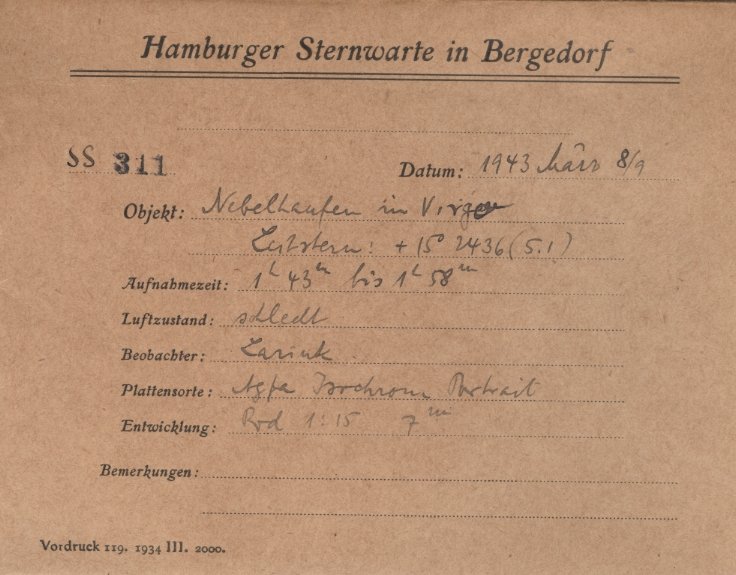 Hamburger Sternwarte in Bergedorf
SS 311
Datum: 1943 März 8/9
Objekt: Nebelhaufen in Virgo
Leitstern: + 15° 2436 (5.1)
Aufnahmezeit: 1h 43m bis 1h 58m
Luftzustand: schlecht
Beobachter: Larink
Plattensorte: Agfa Isochrom Portrait
Entwicklung: Rod 1:15 7m
Bemerkungen:
Vordruck 119. 1934 III. 2000.